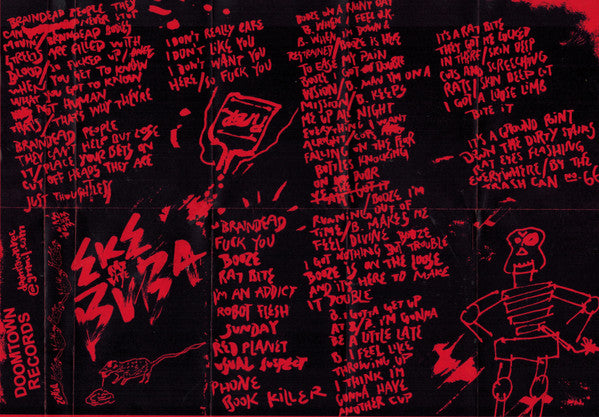 BRAINDEAD PEOPLE THEY
NEVER STOP
MOUTH/BRAINDEAD BODIES
STREETS ARE FILLED WITH
BLOOD/SO FUCKED UP/
WHEN/YOU GET TO KNOW
WHAT YOU GOT TO KNOW
NOT HUMAN
THATS/THATS WHY THEYRE
BRAINDEAD PEOPLE
THEY CAN'T HELP BUT LOSE
IT/PLACE YOUR BETS ON
CUT OFF HEADS THEY ARE
JUST THOUGHTLESS
I DON'T REALLY CARE
I DON'T LIKE YOU
I DON'T WANT YOU
HERE/SO FUCK YOU
BOOZE ON A FRIDAY DAY
B. WHEN I FEEL O.K.
B. WHEN I'M DOWN &
RESTRAINED/BOOZE IS HERE
TO EASE MY PAIN
BOOZE I GOT DOUBLE
VISION/B. NOW I'M ON A
MISSION/B. KEEPS
ME UP ALL NIGHT
EVERYTHING I WANT
ALRIGHT COPS
FALLING ON THE FLOOR
BOTTLES KNOCKING
ON DOOR
BOOZE I'M
RUNNING OUT OF
TIME/B. MAKES ME
FEEL DIVINE BOOZE
I GOT NOTHING BUT TROUBLE
BOOZE IS ON THE LOOSE
AND IT'S HERE TO MAKE
IT DOUBLE
B. I GOTTA GET UP
AT 8/B. I'M GONNA
BE A LITTLE LATE
B. I FEEL LIKE
THROWING UP
I THINK I'M
GONNA HAVE
ANOTHER CUP
IT'S A RAT BITE
THEY GOT ME LOCKED
IN THERE/SKIN DEEP
CUTS AND SCREECHING
RATS/SKIN DEEP CUT
I GOT A LOOSE LIMB
BITE IT
IT'S A GROUND POINT
DOWN THE DIRTY STAIRS
RAT EYES FLASHING
EVERYWHERE/BY THE
TRASH CAN
DOOMTOWN
RECORDS
EKE
BUBA
BRAINDEAD
FUCK YOU
BOOZE
RAT BITE
I'M AN ADDICT
ROBOT FLESH
SUNDAY
RED PLANET
USUAL SUSPECT
PHONE
BOOK KILLER